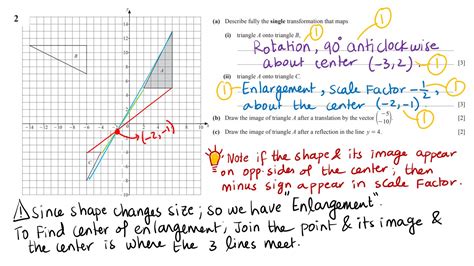 2
(a) Describe fully the single transformation that maps
(i) triangle A onto triangle B,
Rotation, 90° anticlockwise
about center (-3,2)
[3]
(ii) triangle A onto triangle C.
Enlargement, scale Factor -1/2,
about the center (-2,-1)
[3]
(b) Draw the image of triangle A after a translation by the vector (-5 -10).
[2]
(c) Draw the image of triangle A after a reflection in the line y = 4.
[2]
B
A
C
(-2,-1)
Note if the shape & its image appear
on opp. sides of the center; then
minus sign appear in scale Factor.
Since shape changes size; so we have "Enlargement".
To Find center of enlargement, Join the point & its image &
the center is where the 3 lines meet.